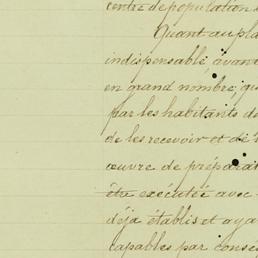 centre de population
Quant au pla
indispensable, avan
en grand nombre, qu
par les habitants de
de les recevoir et de
œuvre de préparat
être exécutée avec
déja établis et aya
capables par consé